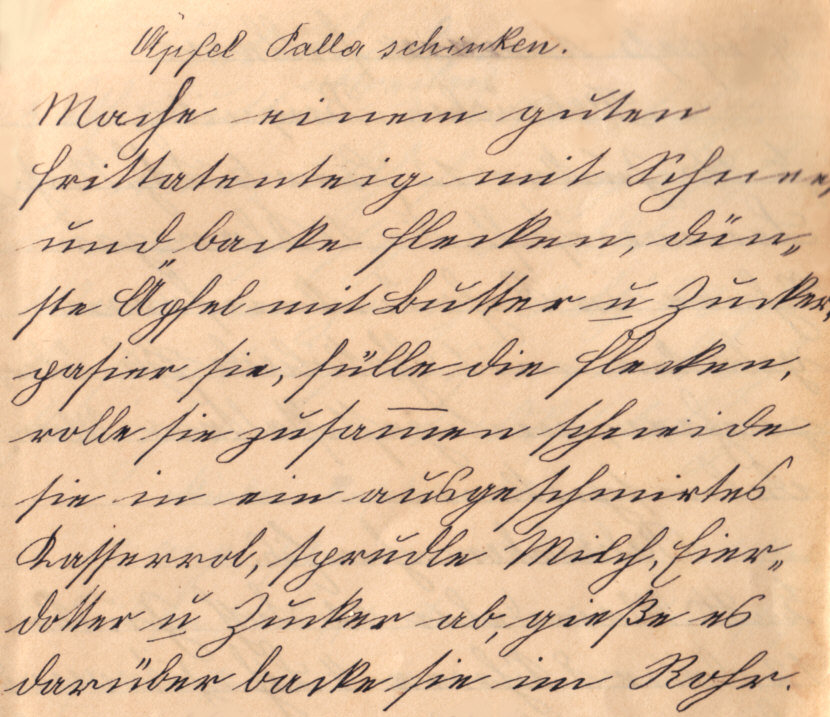 Äpfel Palla schinken.
Mache einem guten
frittatenteig mit Schnee,
und backe flecken, dün„
ste Äpfel mit Butter u Zucker,
pasier sie, fülle die flecken,
rolle sie zusam̅en schneide
sie in ein ausgeschmirtes
Kasserrol, sprudle Milch, Eier„
dotter u Zucker ab, gieße es
darüber backe sie im Rohr.